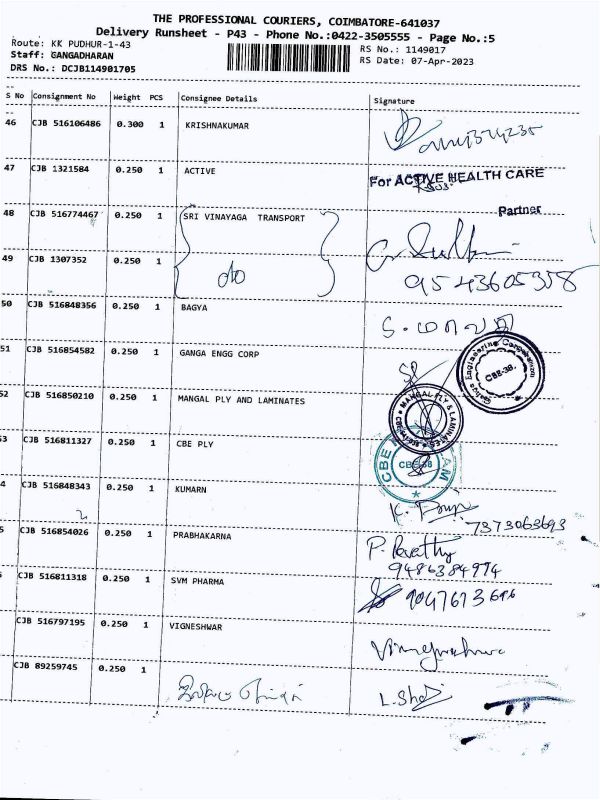 THE PROFESSIONAL COURIERS, COIMBATORE-641037
Delivery Runsheet - P43 - Phone No.:0422-3505555 - Page No.:5
Route: KK PUDHUR-1-43
RS No.: 1149017
Staff: GANGADHARAN
RS Date: 07-Apr-2023
DRS No.: DCJB114901705
S No Consignment No Weight PCS Consignee Details Signature
46 CJB 516106486 0.300 1 KRISHNAKUMAR
47 CJB 1321584 0.250 1 ACTIVE
For ACTIVE HEALTH CARE
Partner
48 CJB 516774467 0.250 1 SRI VINAYAGA TRANSPORT
49 CJB 1307352 0.250 1 do
9543605358
50 CJB 516848356 0.250 1 BAGYA
51 CJB 516854582 0.250 1 GANGA ENGG CORP
CBE-38.
52 CJB 516850210 0.250 1 MANGAL PLY AND LAMINATES
MANGAL PLY & LAMINATES
53 CJB 516811327 0.250 1 CBE PLY
CBE-38
4 CJB 516848343 0.250 1 KUMARN
K.
7373063693
5 CJB 516854026 0.250 1 PRABHAKARNA
P. Revathy
9486384974
CJB 516811318 0.250 1 SVM PHARMA
CJB 516797195 0.250 1 VIGNESHWAR
CJB 89259745 0.250 1